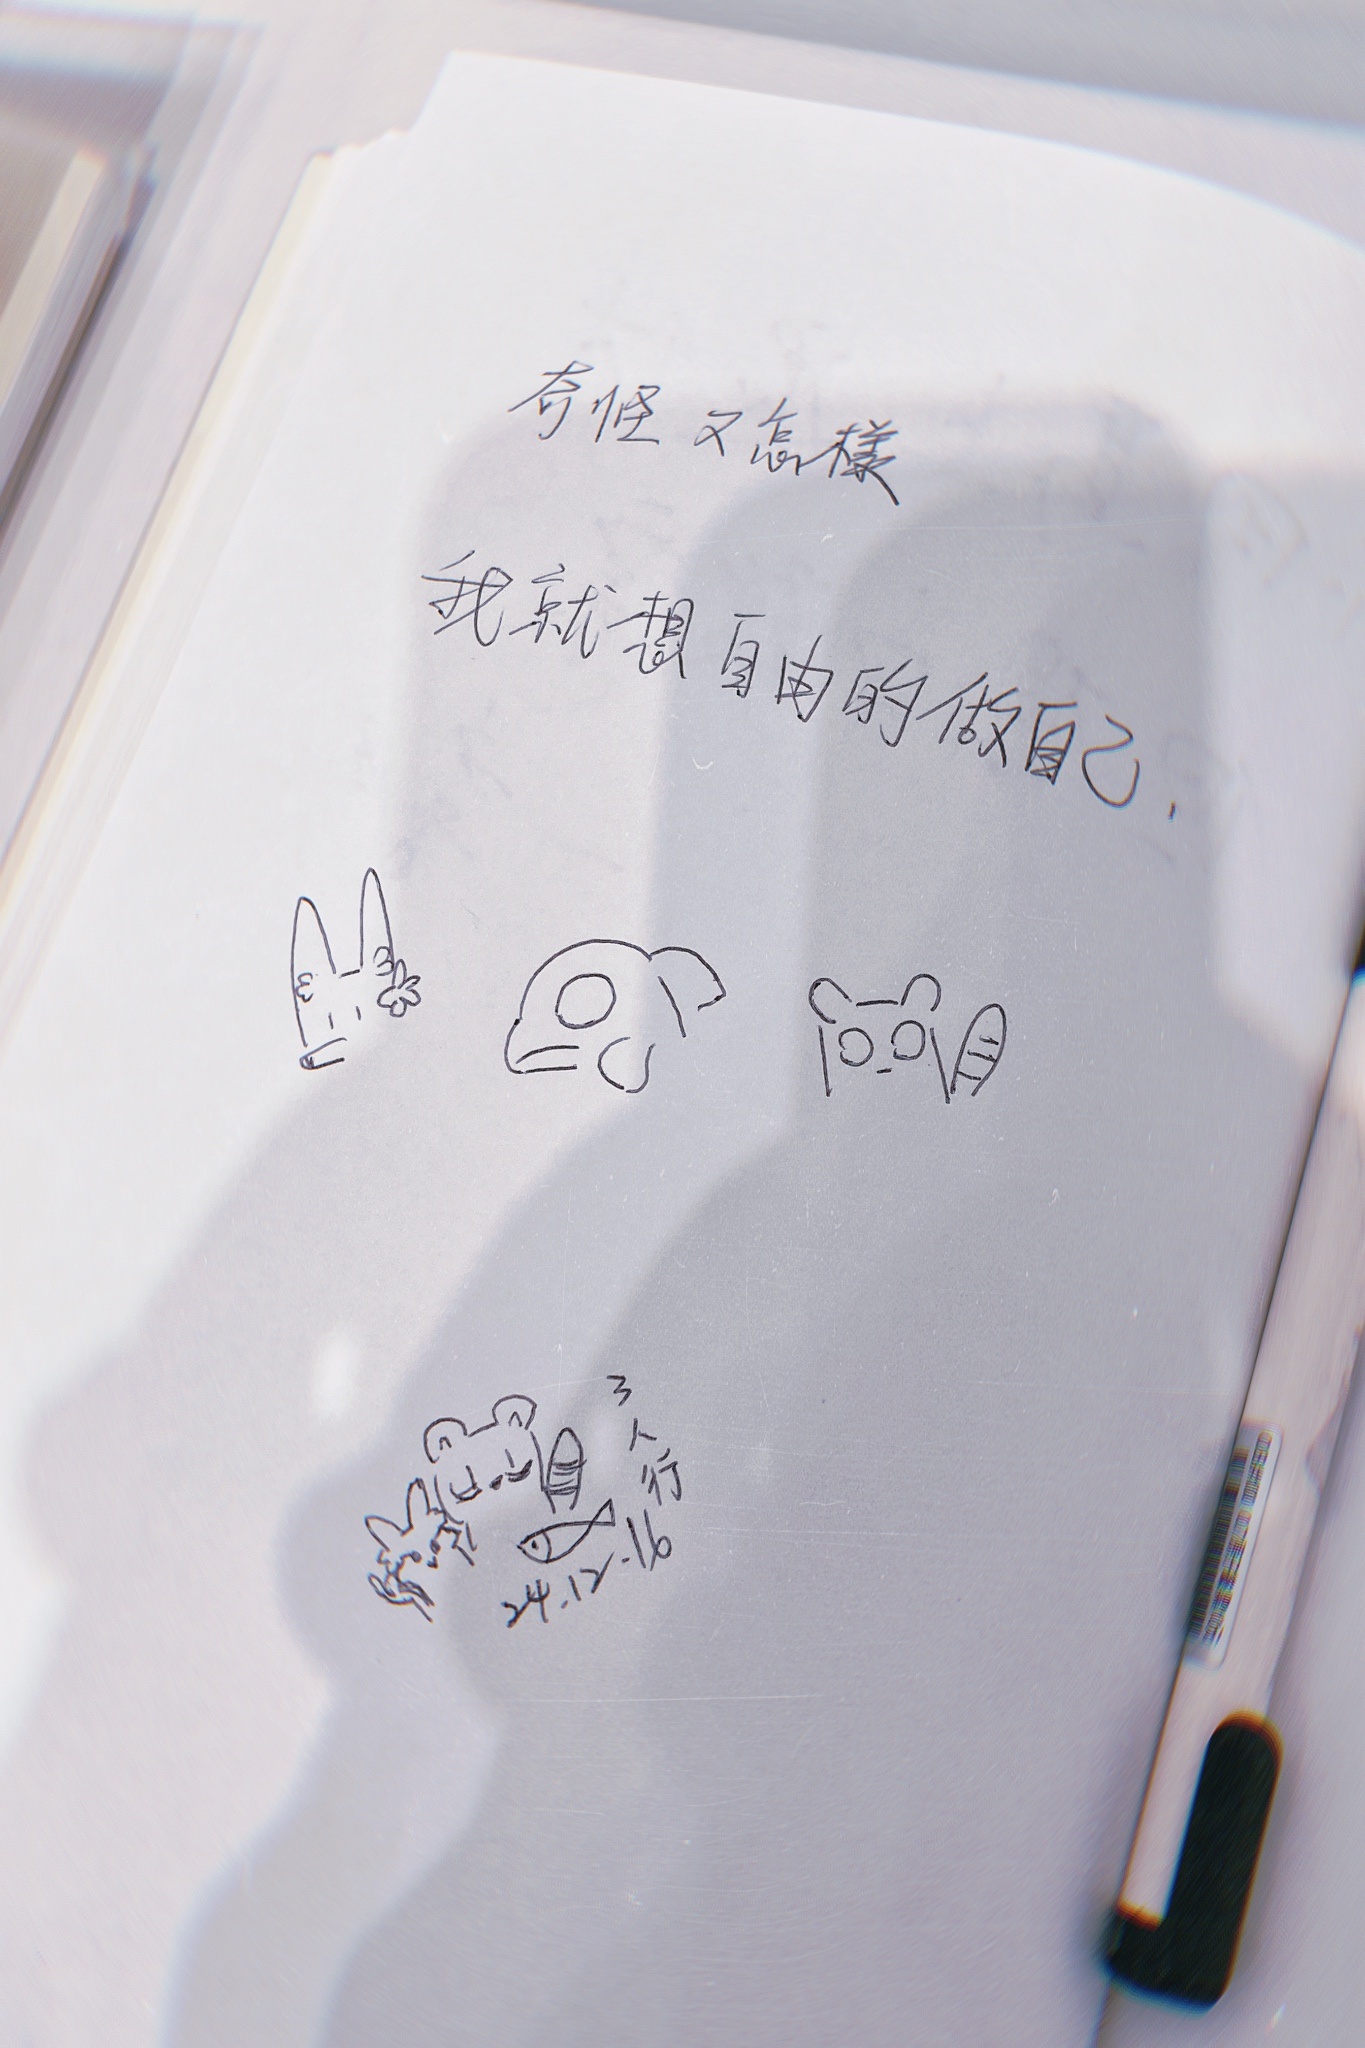 奇怪又怎樣
我就想自由的做自己.
3人行
24.12.16